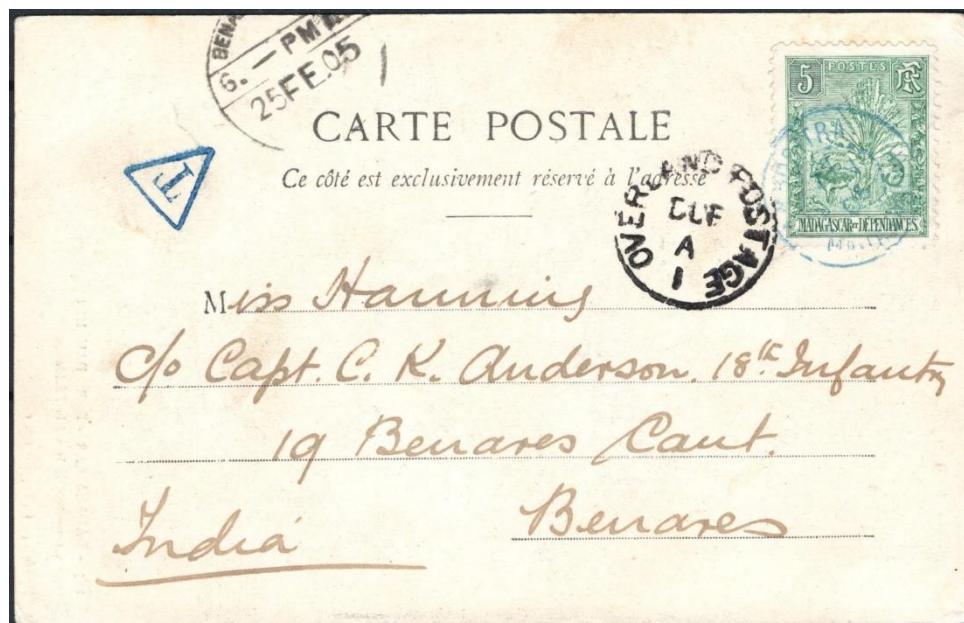 BENA
6. - PM
25 FE. 05
5 POSTES RF
CARTE POSTALE
T
Ce côté est exclusivement réservé à l'adresse
OVERLAND POSTAGE
DUE
A
1
MADAGASCAR ET DÉPENDANCES
Miss Hanning
c/o Capt. C. K. Anderson. 18th Infantry
19 Benares Cant.
Benares
India